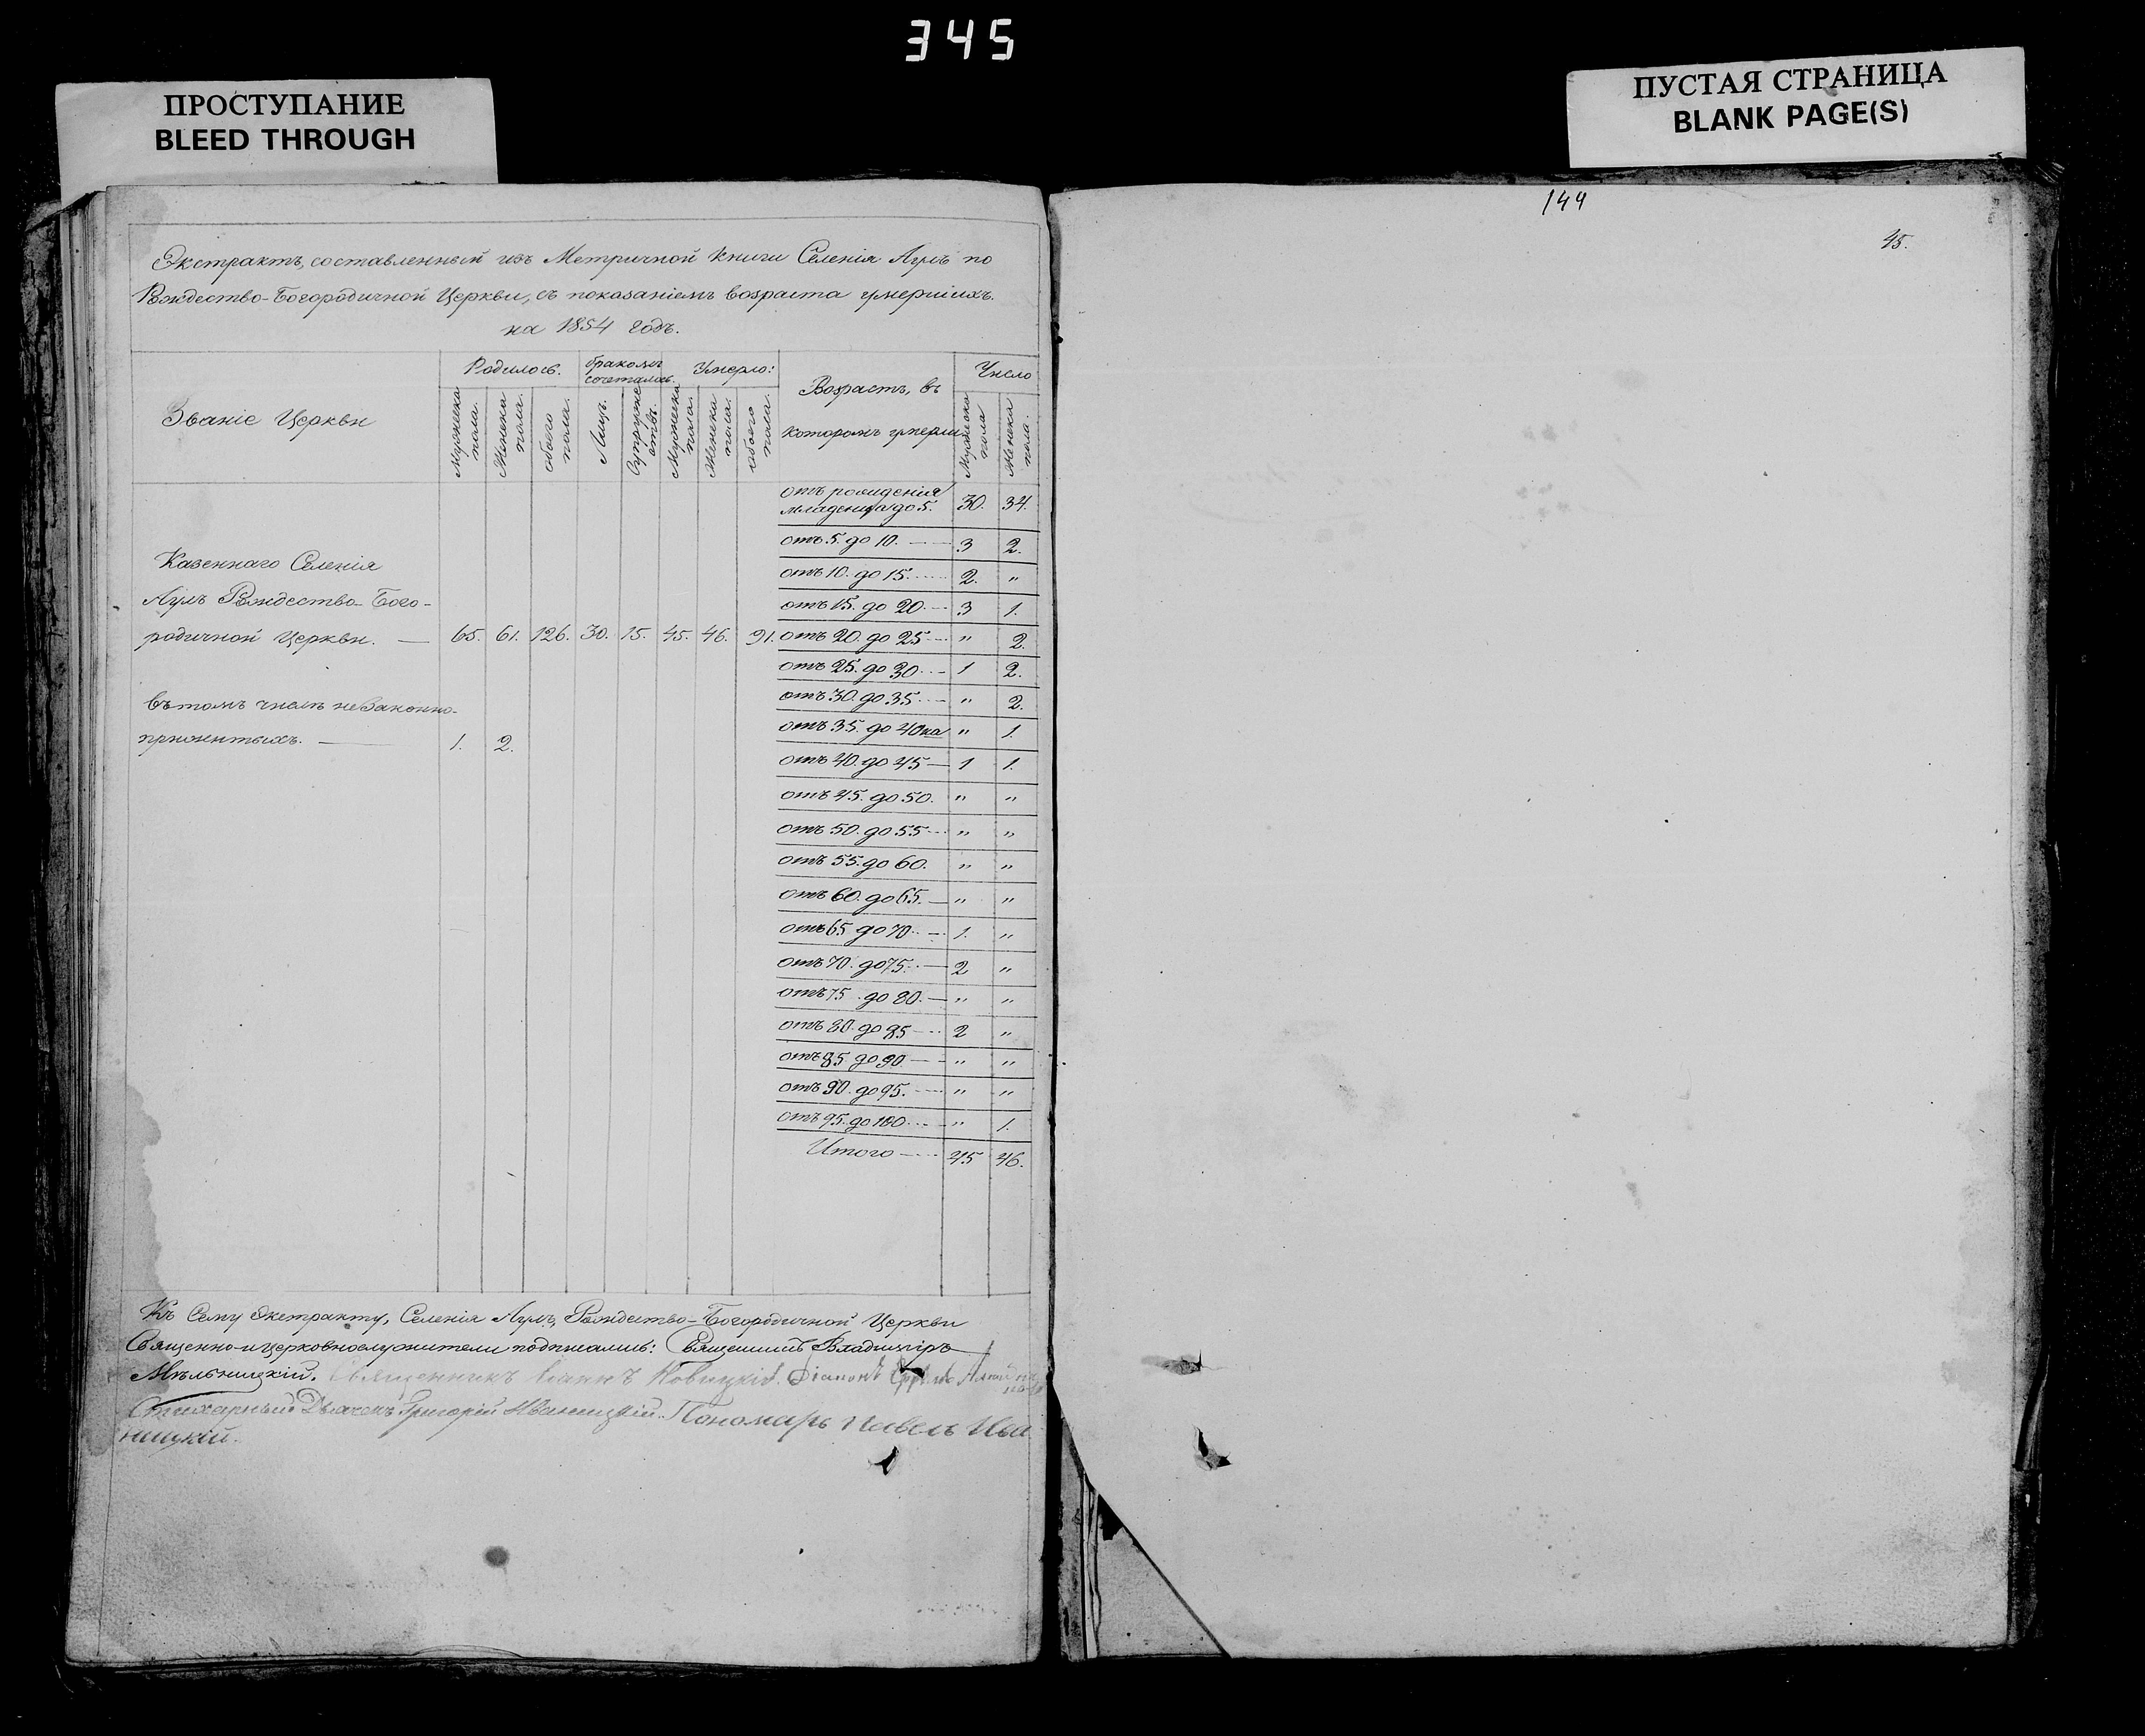 345
ПРОСТУПАНИЕ
BLEED THROUGH
ПУСТАЯ СТРАНИЦА
BLANK PAGE(S)
144
45.
Экстрактъ, составленный изъ Метричной книги Селенія Аулъ по
Рождество-Богородичной Церкви, съ показаніемъ возраста умершихъ.
на 1854 годъ.
Званіе Церкви
Родилось.
бракомъ сочеталось.
Умерло:
Возрастъ, въ которомъ умерли
Число
Мужеска пола.
Женска пола.
обоего пола.
Лицъ.
Супружествъ.
Мужеска пола.
Женска пола.
обоего пола.
Мужеска пола
Женска пола.
отъ рожденія
младенца до 5. 30. 34.
отъ 5. до 10. 3 2.
отъ 10. до 15. 2. "
отъ 15. до 20. 3 1.
Казеннаго Селенія
Аулъ Рождество-Бого-
родичной Церкви. — 65. 61. 126. 30. 15. 45. 46. 91.
отъ 20. до 25 " 2.
отъ 25. до 30. 1 2.
отъ 30. до 35. " 2.
отъ 35. до 40ка " 1.
въ томъ числѣ незаконно-
прижитыхъ. — 1. 2.
отъ 40. до 45 — 1 1.
отъ 45. до 50. " "
отъ 50. до 55 " "
отъ 55. до 60. " "
отъ 60. до 65. — " "
отъ 65 до 70. 1. "
отъ 70. до 75. 2 "
отъ 75. до 80. — " "
отъ 80. до 85 2 "
отъ 85 до 90 " "
отъ 90. до 95. " "
отъ 95. до 100. " 1.
Итого 45 46.
Къ Сему Экстракту, Селенія Аулъ, Рождество-Богородичной Церкви
Священно-и церковнослужители подписались: Священникъ Владиміръ
Мѣльницкій. Священникъ Іоаннъ Новицкій. Діаконъ
Стихарный Дьячекъ Григорій Иваницкій. Пономарь Павелъ Ива
ницкій.